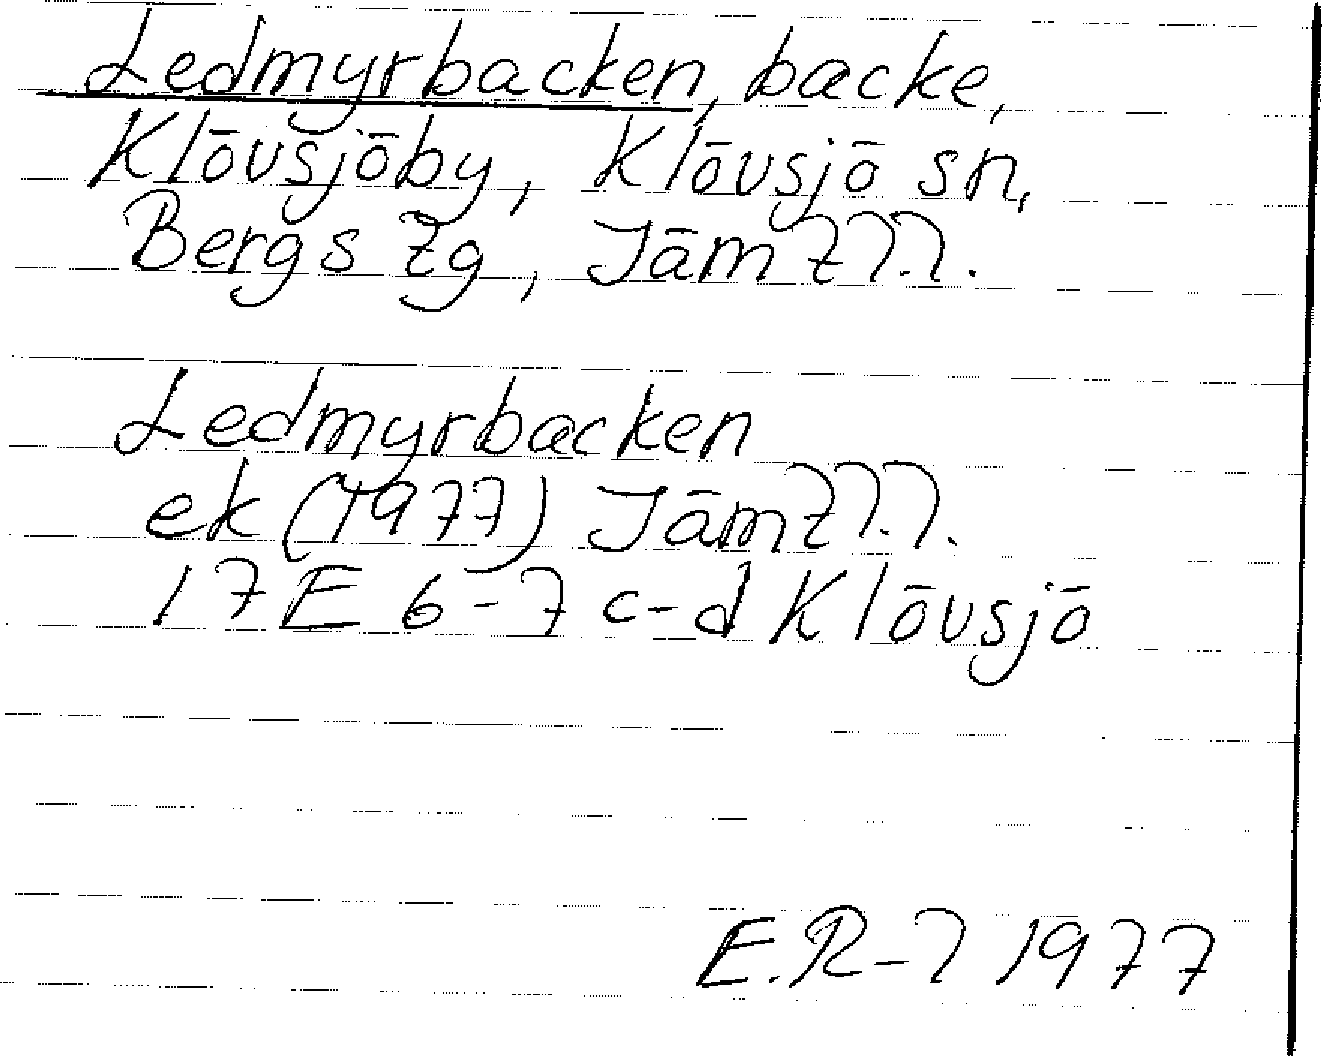 Ledmyrbacken, backe,
Klövsjöby, Klövsjö sn,
Bergs tg, Jämt??.
Ledmyrbacken
ek (1977) Jämt??.
17E 6-7 c-d Klövsjö
E.R-? 1977